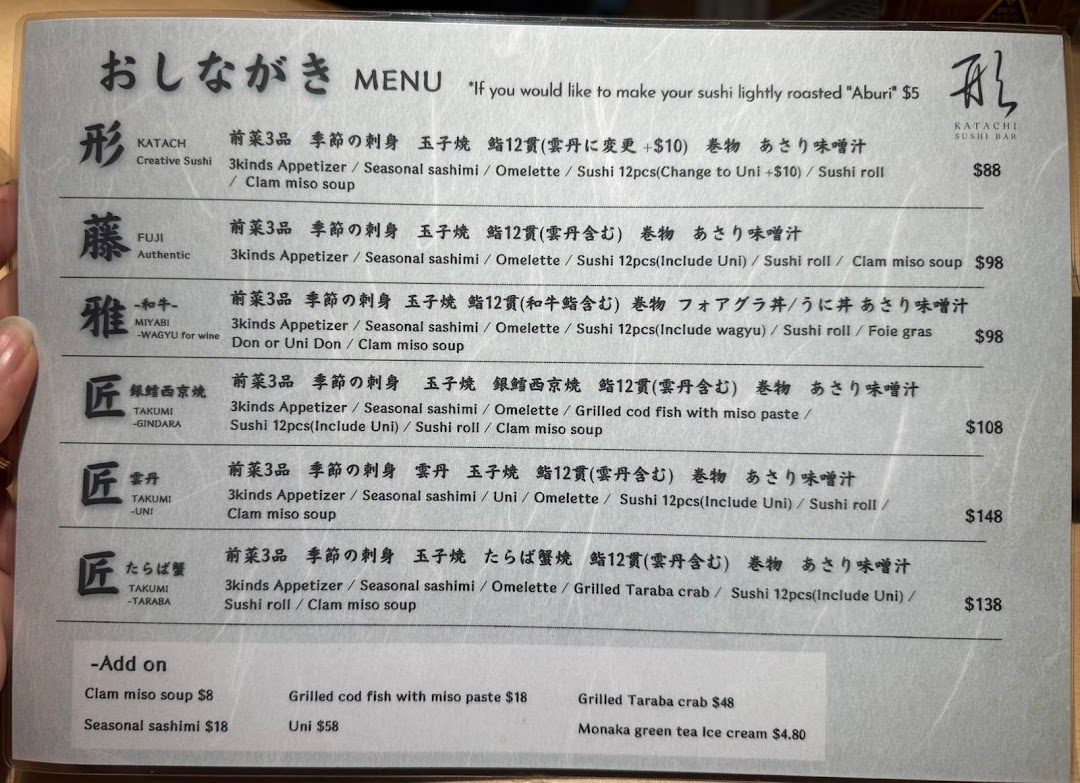 おしながき MENU *If you would like to make your sushi lightly roasted "Aburi" $5
形
KATACHI
SUSHI BAR
形 KATACH
Creative Sushi
前菜3品 季節の刺身 玉子焼 鮨12貫(雲丹に変更 +$10) 巻物 あさり味噌汁
3kinds Appetizer / Seasonal sashimi / Omelette / Sushi 12pcs(Change to Uni +$10) / Sushi roll
/ Clam miso soup
$88
藤 FUJI
Authentic
前菜3品 季節の刺身 玉子焼 鮨12貫(雲丹含む) 巻物 あさり味噌汁
3kinds Appetizer / Seasonal sashimi / Omelette / Sushi 12pcs(Include Uni) / Sushi roll / Clam miso soup $98
雅 -和牛-
MIYABI
-WAGYU for wine
前菜3品 季節の刺身 玉子焼 鮨12貫(和牛鮨含む) 巻物 フォアグラ丼/うに丼 あさり味噌汁
3kinds Appetizer / Seasonal sashimi / Omelette / Sushi 12pcs(Include wagyu) / Sushi roll / Foie gras
Don or Uni Don / Clam miso soup
$98
匠 銀鱈西京焼
TAKUMI
-GINDARA
前菜3品 季節の刺身 玉子焼 銀鱈西京焼 鮨12貫(雲丹含む) 巻物 あさり味噌汁
3kinds Appetizer / Seasonal sashimi / Omelette / Grilled cod fish with miso paste /
Sushi 12pcs(Include Uni) / Sushi roll / Clam miso soup
$108
匠 雲丹
TAKUMI
-UNI
前菜3品 季節の刺身 雲丹 玉子焼 鮨12貫(雲丹含む) 巻物 あさり味噌汁
3kinds Appetizer / Seasonal sashimi / Uni / Omelette / Sushi 12pcs(Include Uni) / Sushi roll /
Clam miso soup
$148
匠 たらば蟹
TAKUMI
-TARABA
前菜3品 季節の刺身 玉子焼 たらば蟹焼 鮨12貫(雲丹含む) 巻物 あさり味噌汁
3kinds Appetizer / Seasonal sashimi / Omelette / Grilled Taraba crab / Sushi 12pcs(Include Uni) /
Sushi roll / Clam miso soup
$138
-Add on
Clam miso soup $8
Grilled cod fish with miso paste $18
Grilled Taraba crab $48
Seasonal sashimi $18
Uni $58
Monaka green tea Ice cream $4.80